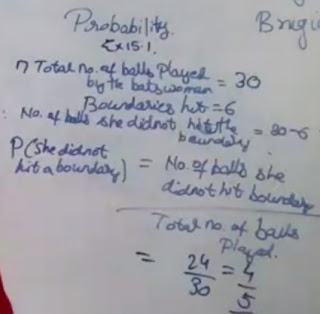 Probability.
Ex 15.1.
1) Total no. of balls Played
by the batswoman = 30
Boundaries hit = 6
∴ No. of balls she didnot hit the
boundary = 30-6
P(she didnot
hit a boundary) = No. of balls she
didnot hit boundary
Total no. of balls
Played.
= 24/30 = 4/5